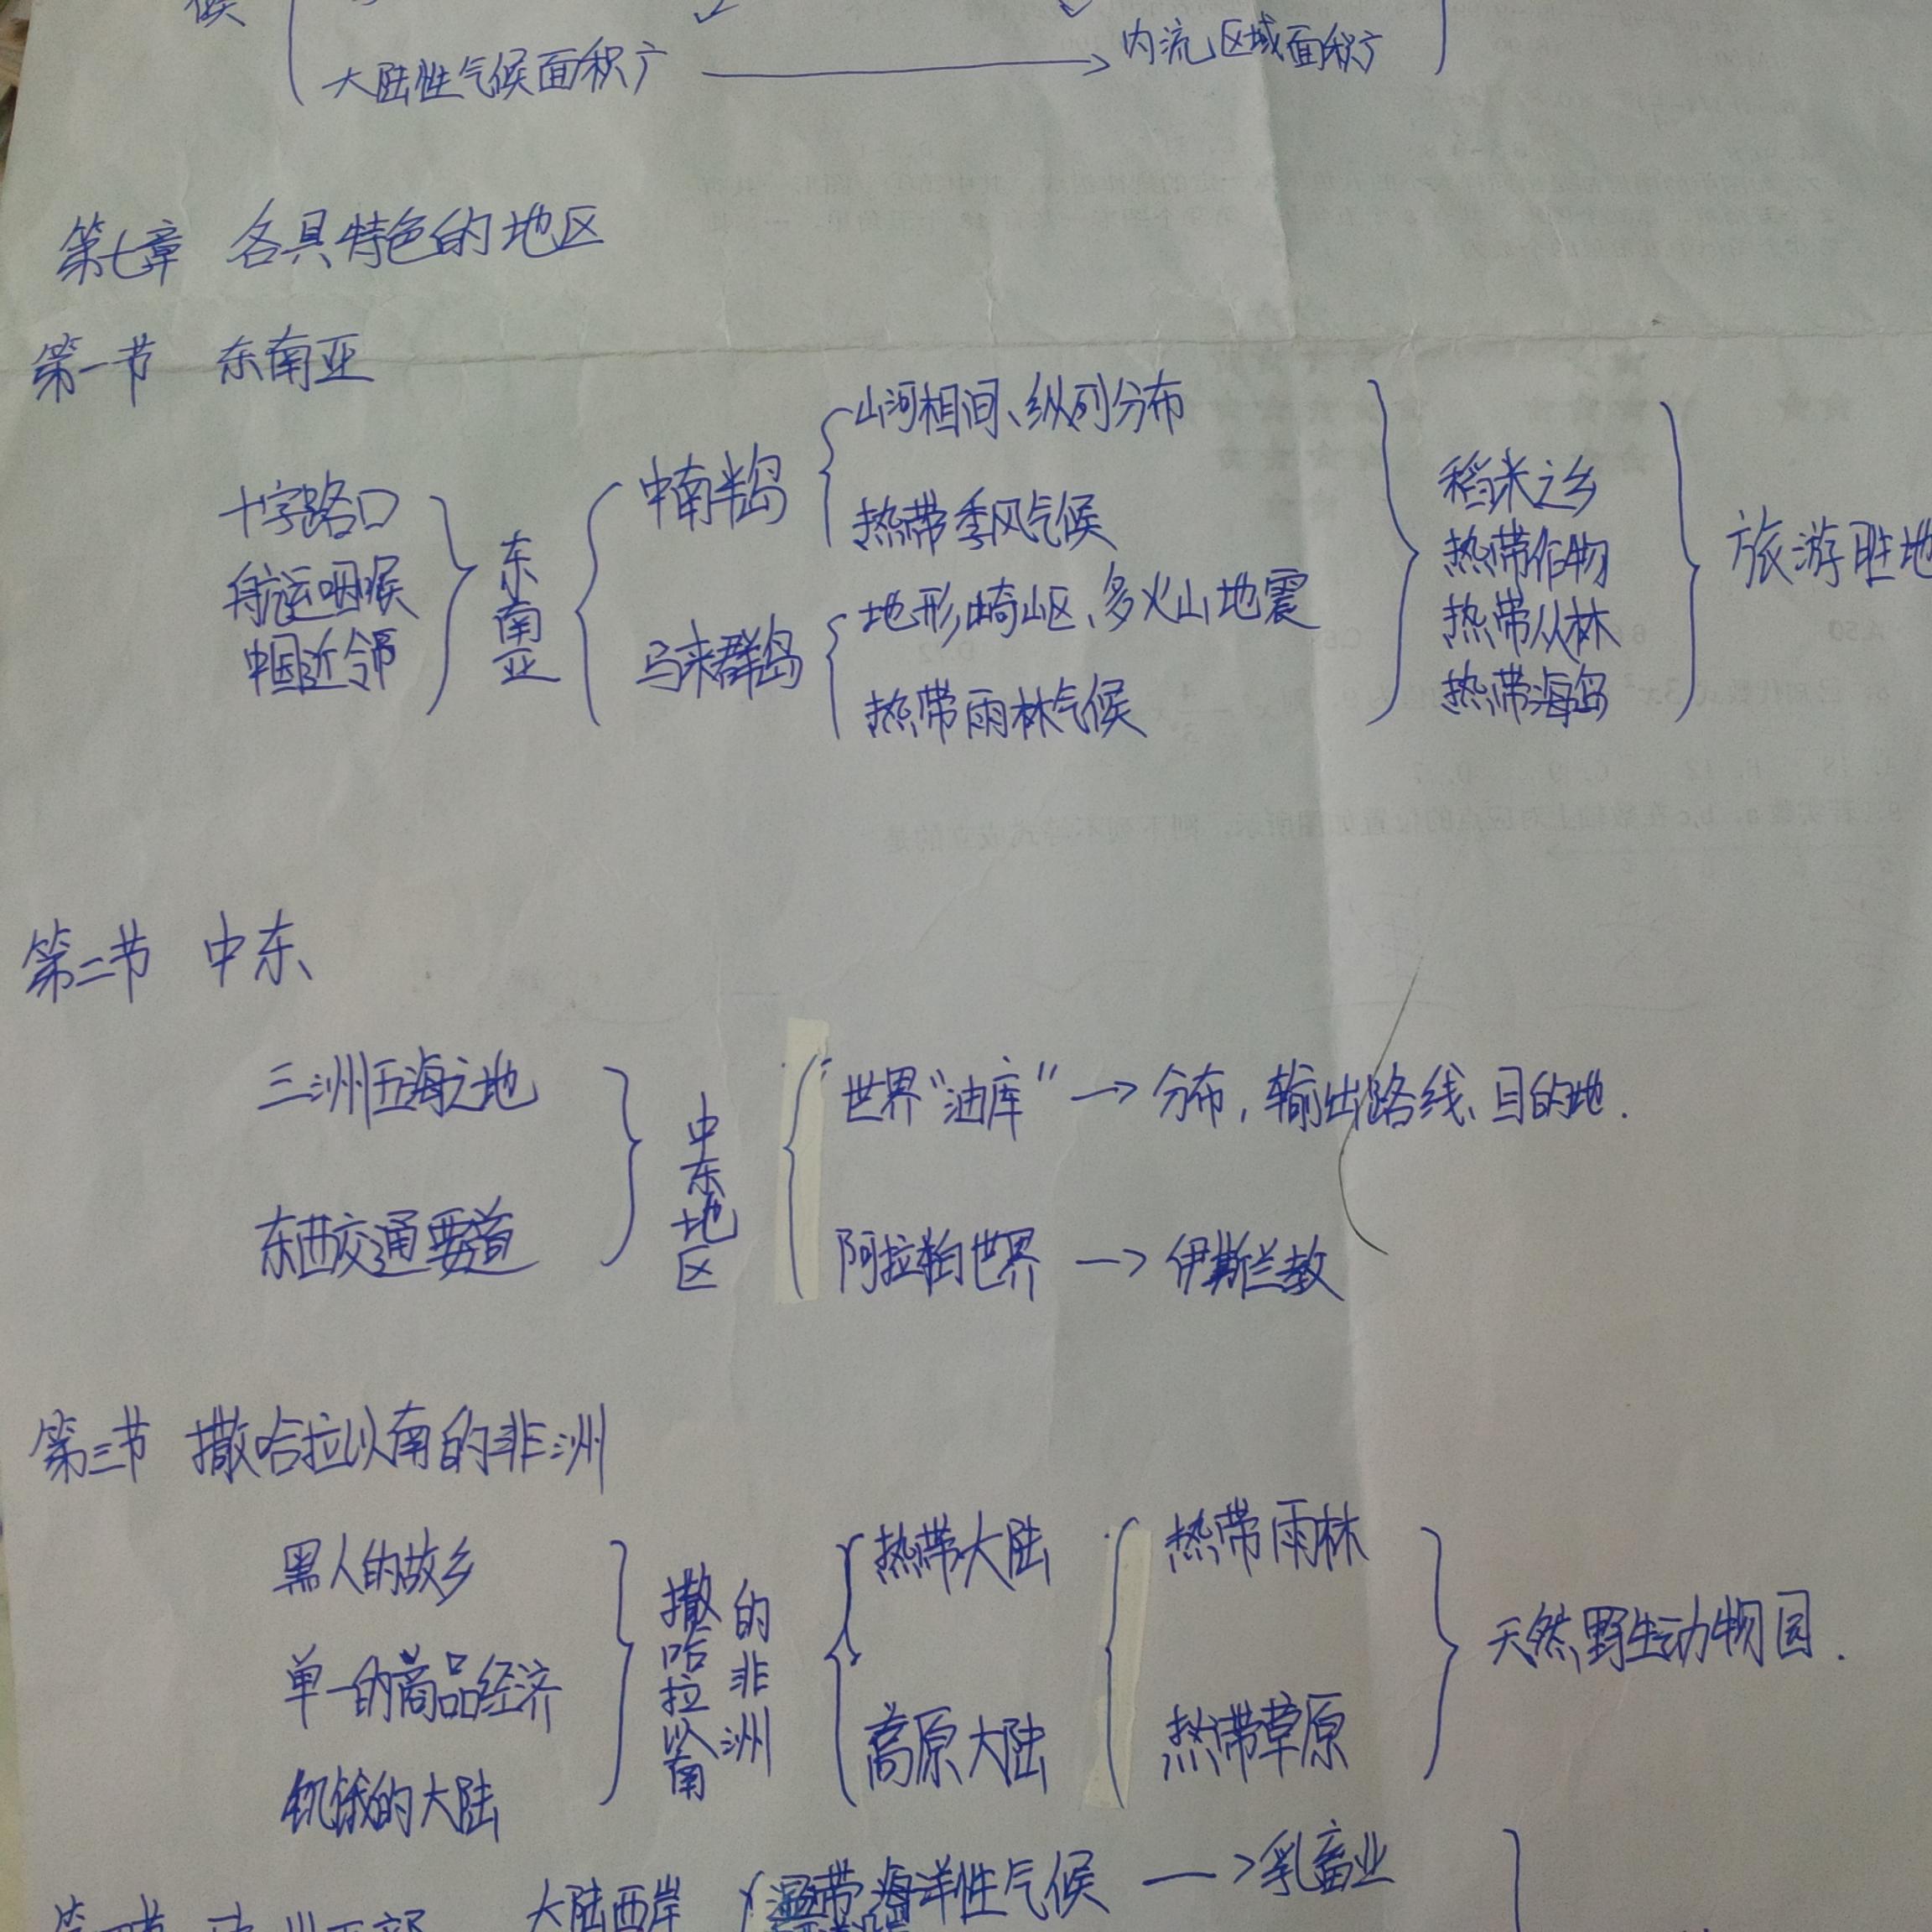 候
大陆性气候面积广 → 内流区域面积广
第七章 各具特色的地区
第一节 东南亚
山河相间、纵列分布
中南半岛
热带季风气候
十字路口
航运咽喉
中国近邻
东南亚
马来群岛
地形崎岖、多火山地震
热带雨林气候
稻米之乡
热带作物
热带丛林
热带海岛
旅游胜地
第二节 中东
三洲五海之地
东西交通要道
中东地区
世界“油库” → 分布,输出路线、目的地.
阿拉伯世界 → 伊斯兰教
第三节 撒哈拉以南的非洲
黑人的故乡
单一的商品经济
饥饿的大陆
撒哈拉以南的非洲
热带大陆
高原大陆
热带雨林
热带草原
天然野生动物园.
大陆西岸 温带海洋性气候 → 乳畜业